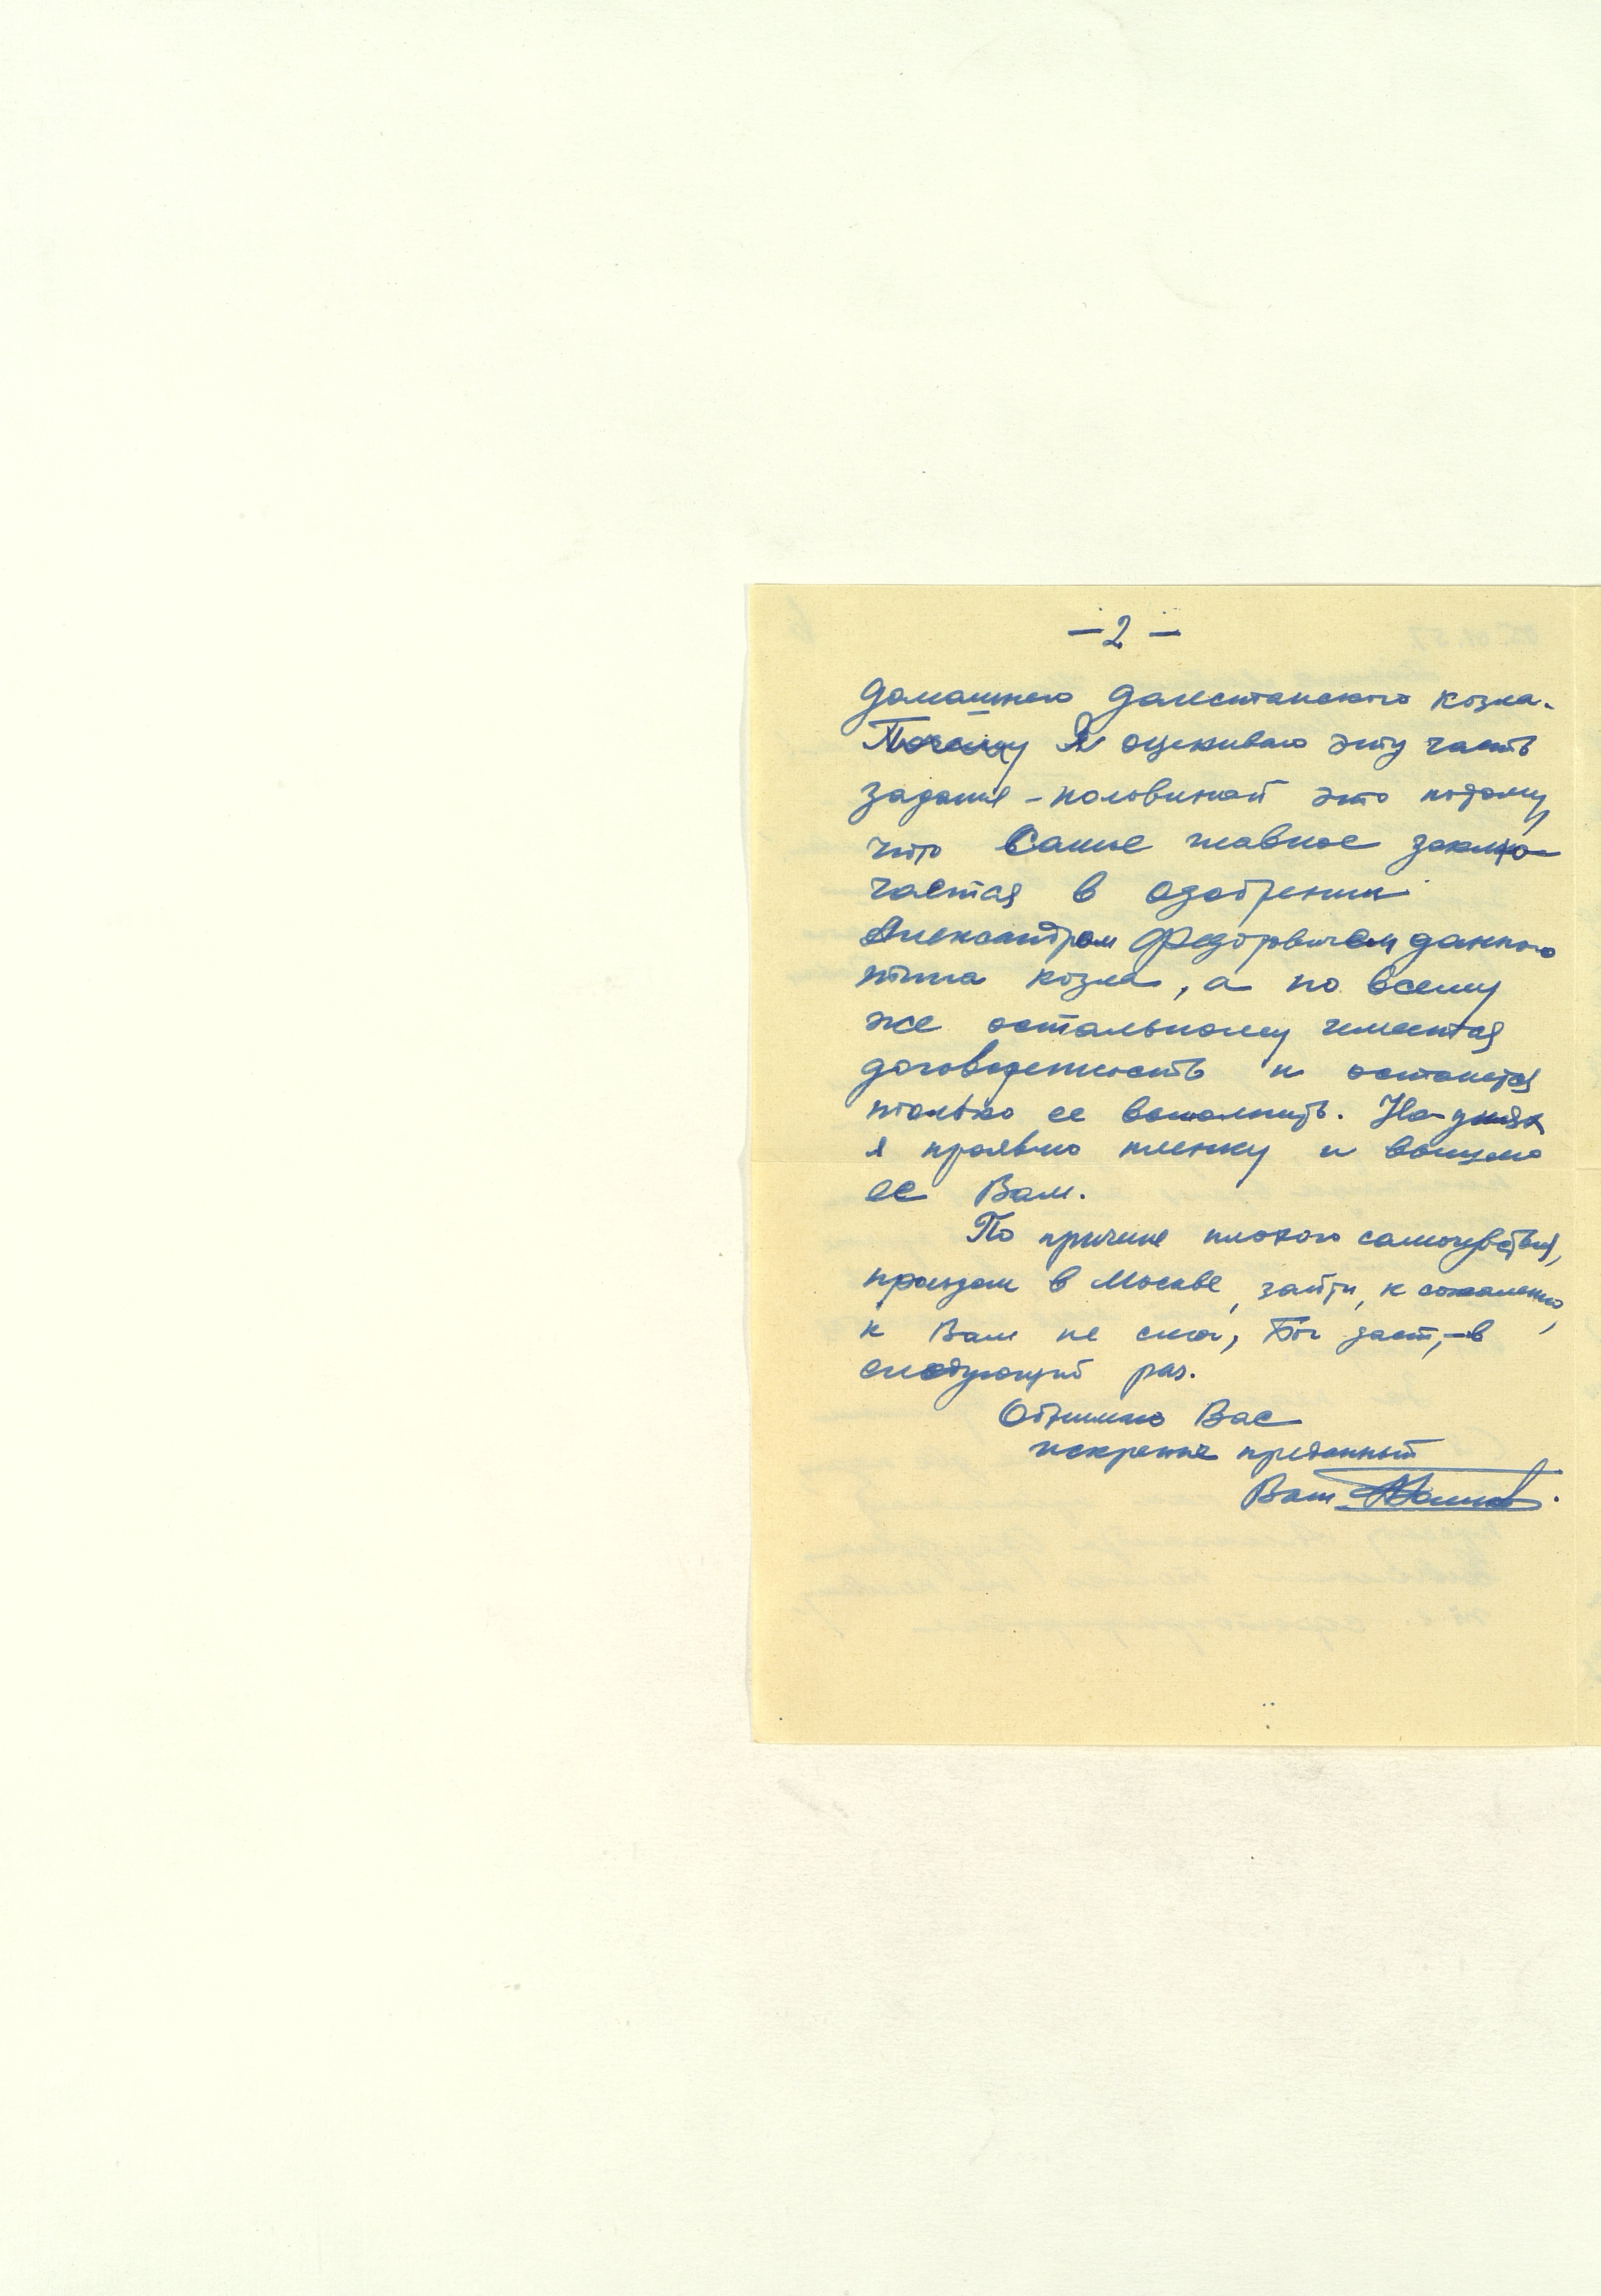 – 2 –
домашнего дагестанского козла.
Почему Я оцениваю эту часть
задания – половиной это потому,
что Самое главное заклю-
чается в одобрении
Александром Федоровичем данного
типа козла, а по всему
же остальному имеется
договоренность и останется
только ее выполнить. На-днях
я проявлю пленку и вышлю
ее Вам.
По причине плохого самочувствия,
проездом в Москве, зайти, к сожалению,
к Вам не смог, Бог даст, – в
следующий раз.
Обнимаю Вас
искренне преданный
Ваш